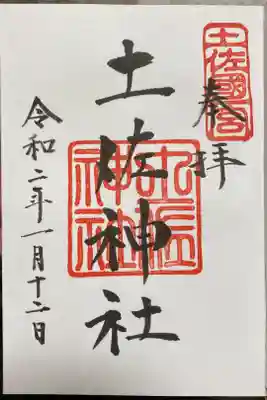 奉拝
土佐國一宮
土佐神社
土佐神社
令和二年一月十二日